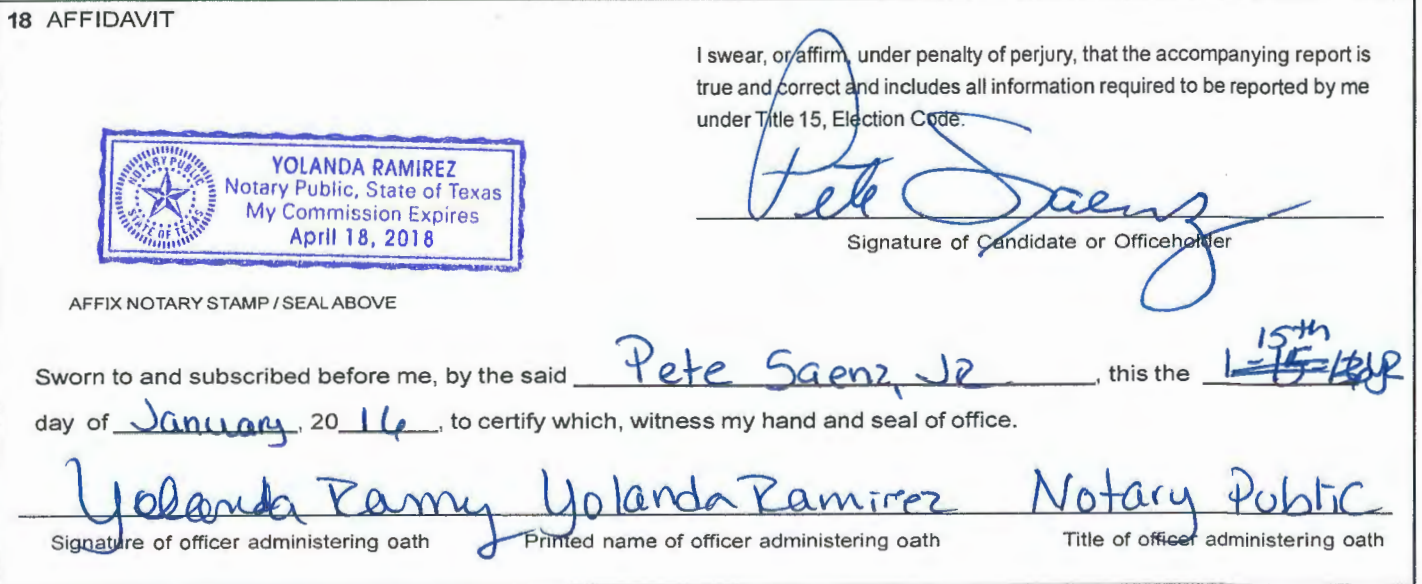 18 AFFIDAVIT
I swear, or affirm, under penalty of perjury, that the accompanying report is
true and correct and includes all information required to be reported by me
under Title 15, Election Code.
NOTARY PUBLIC
STATE OF TEXAS
YOLANDA RAMIREZ
Notary Public, State of Texas
My Commission Expires
April 18, 2018
Pete Saenz
Signature of Candidate or Officeholder
AFFIX NOTARY STAMP / SEAL ABOVE
15th
Sworn to and subscribed before me, by the said Pete Saenz, JR , this the
day of January, 20 16, to certify which, witness my hand and seal of office.
Yolanda Ramirez Notary Public
Signature of officer administering oath Printed name of officer administering oath Title of officer administering oath